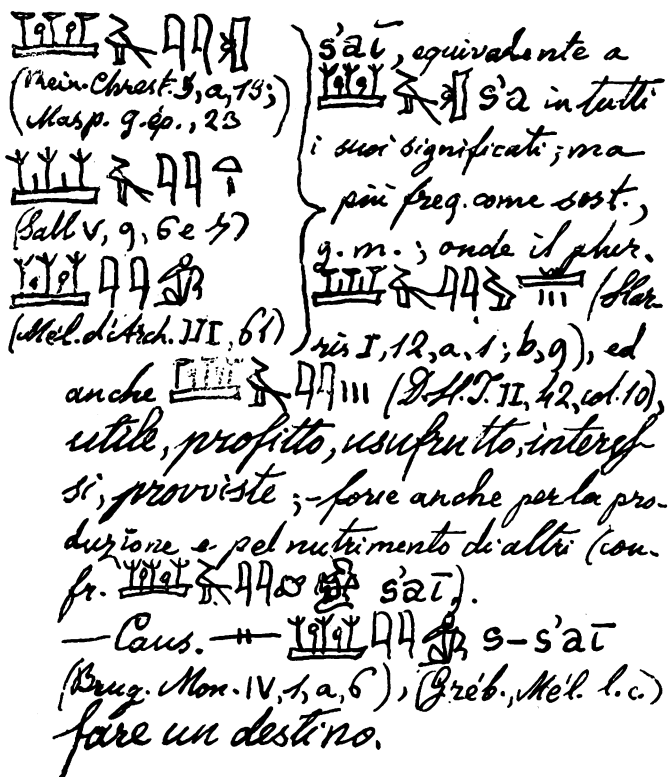 (Rein. Chrest. 5, a, 15;
Masp. g. ép., 23
(Sall V, 9, 6 e 7)
(Mél. d'Arch. III, 61)
s'aī, equivalente a
s'a in tutti
i suoi significati; ma
più freq. come sost.,
g. m.; onde il plur.
(Har-
ris I, 12, a, 1; b, 9), ed
anche (D.H.I. II, 42, col. 10),
utile, profitto, usufrutto, interes-
si, provviste; - forse anche per la pro-
duzione e pel nutrimento di altri (con-
fr. s'aī).
— Caus. s-s'aī
(Brug. Mon. IV, 1, a, 6), (Gréb., Mél. l. c.)
fare un destino.